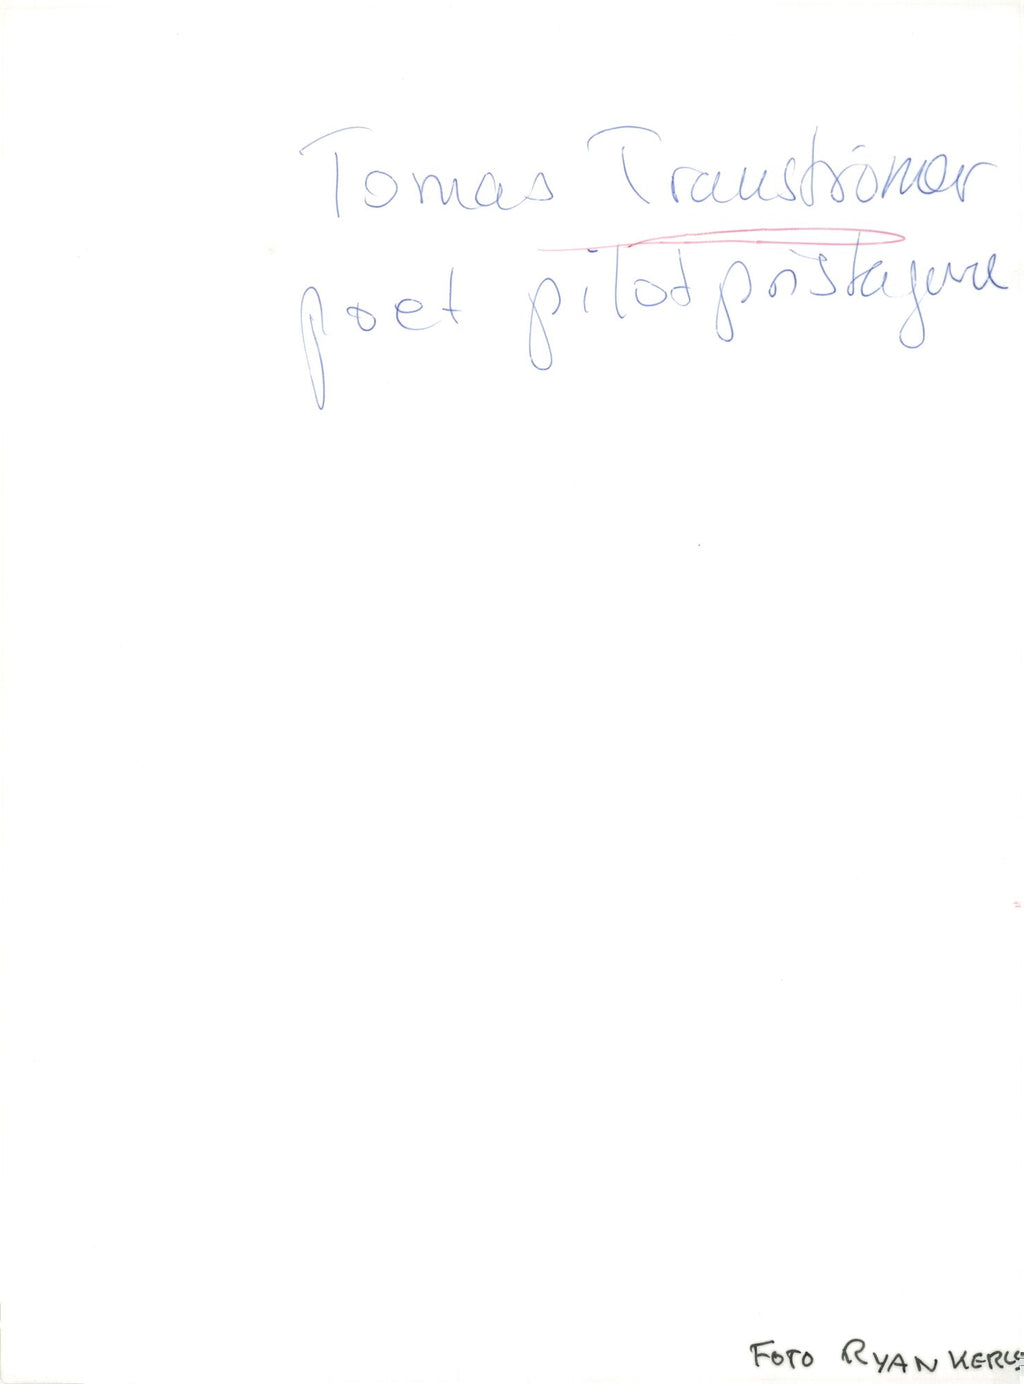 Tomas Tranströmer
poet pilotpristagare
FOTO RYAN